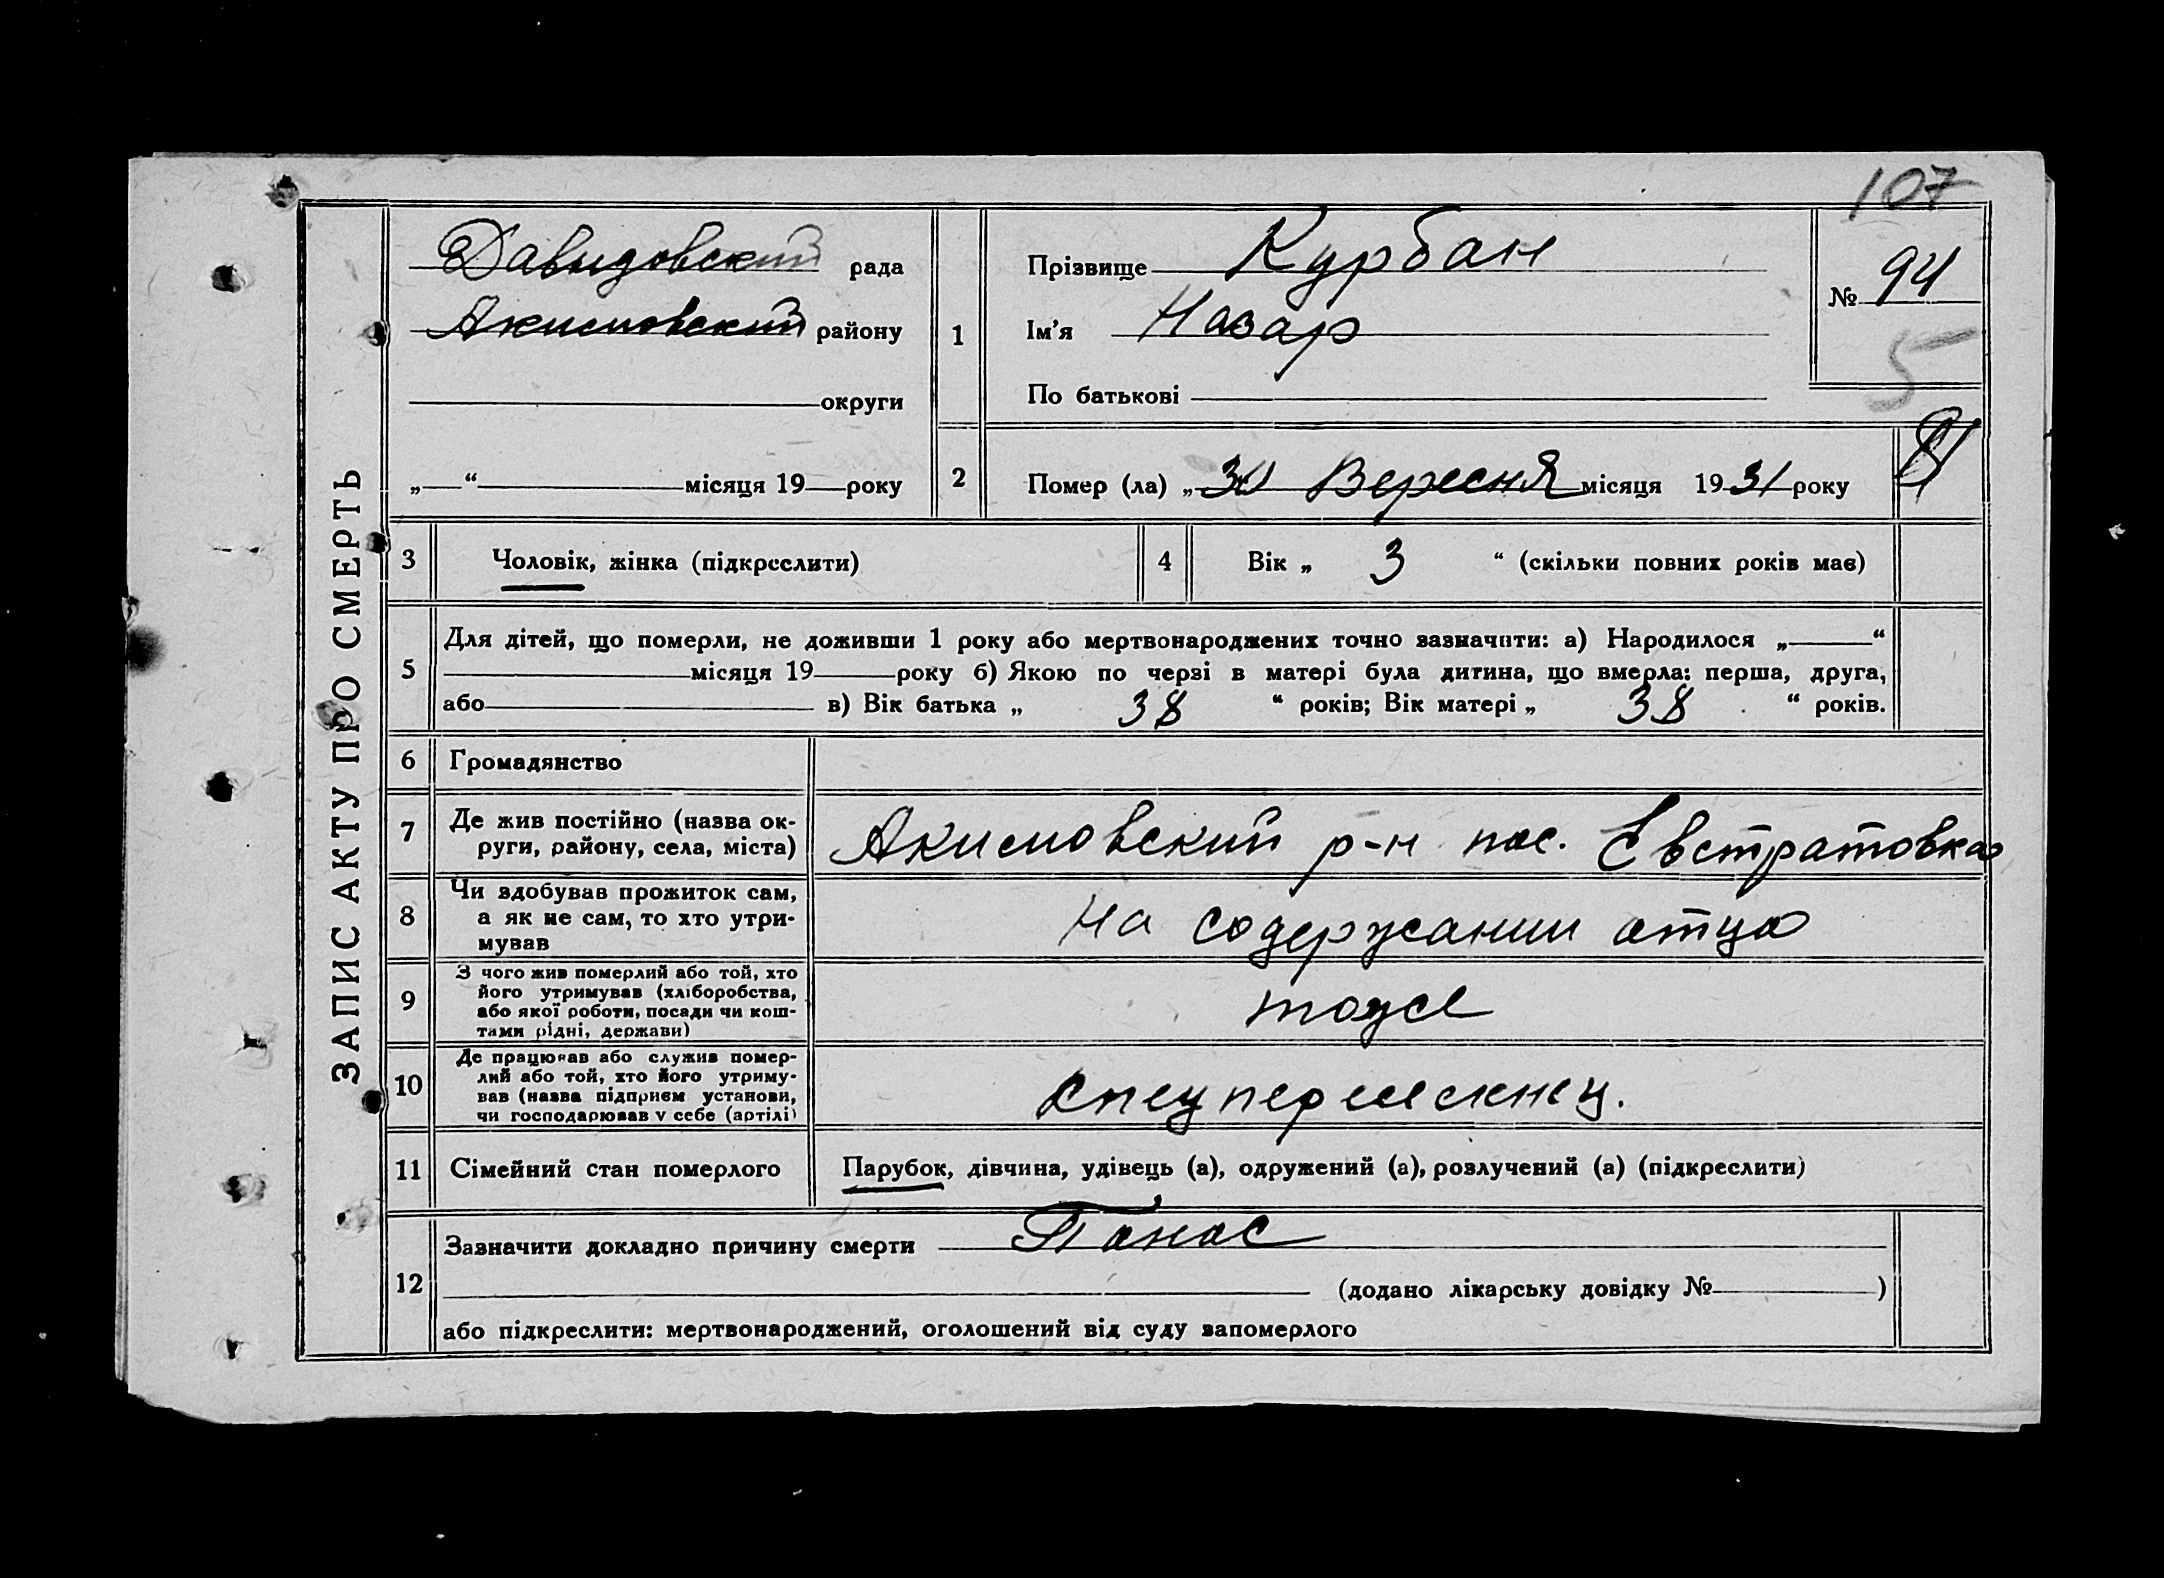 107
ЗАПИС АКТУ ПРО СМЕРТЬ
Давыдовский рада
Акимовский району
округи
„ “ місяця 19 року
1
Прізвище Курбан
Ім’я Назар
По батькові
№ 94
5
2
Помер (ла) „ 30 Вересня місяця 1931 року
3
Чоловік, жінка (підкреслити)
4
Вік „ 3 “ (скільки повних років має)
5
Для дітей, що померли, не доживши 1 року або мертвонароджених точно зазначити: а) Народилося „ “
місяця 19 року б) Якою по черзі в матері була дитина, що вмерла: перша, друга,
або в) Вік батька „ 38 “ років; Вік матері „ 38 “ років.
6
Громадянство
7
Де жив постійно (назва ок-
руги, району, села, міста)
Акимовский р-н пос. Евстратовка
8
Чи здобував прожиток сам,
а як не сам, то хто утри-
мував
На содержании отца
9
З чого жив померлий або той, хто
його утримував (хліборобства,
або якої роботи, посади чи кош-
тами рідні, держави)
тоже
10
Де працював або служив помер-
лий або той, хто його утриму-
вав (назва підприєм установи,
чи господарював у себе (артілі)
11
Сімейний стан померлого
Парубок, дівчина, удівець (а), одружений (а), розлучений (а) (підкреслити)
12
Зазначити докладно причину смерти Панос
(додано лікарську довідку № )
або підкреслити: мертвонароджений, оголошений від суду запомерлого